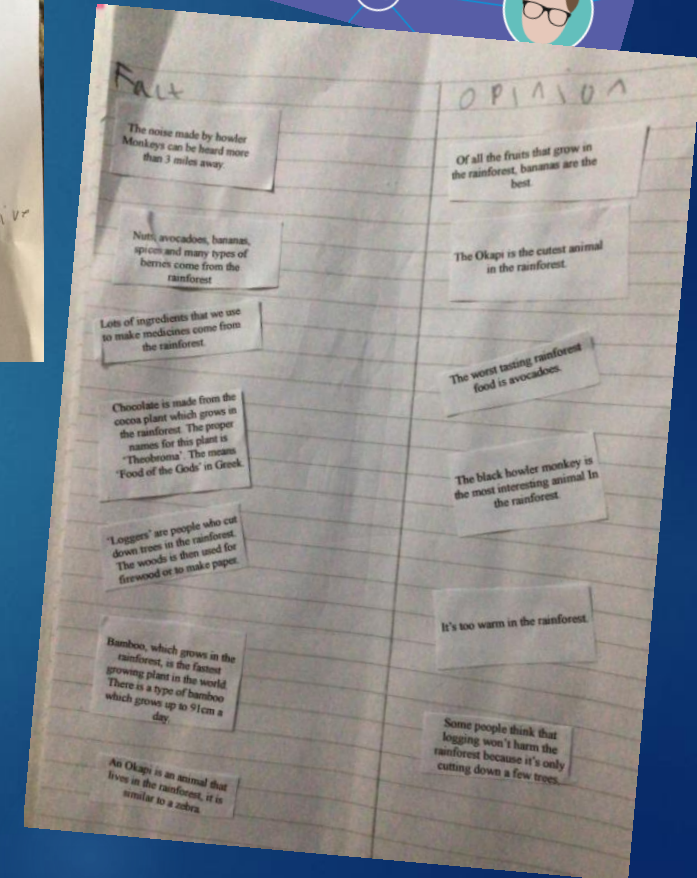 Fact
The noise made by howler
Monkeys can be heard more
than 3 miles away.
Nuts, avocadoes, bananas,
spices and many types of
berries come from the
rainforest
Lots of ingredients that we use
to make medicines come from
the rainforest.
Chocolate is made from the
cocoa plant which grows in
the rainforest. The proper
names for this plant is
'Theobroma'. The means
'Food of the Gods' in Greek.
'Loggers' are people who cut
down trees in the rainforest.
The woods is then used for
firewood or to make paper.
Bamboo, which grows in the
rainforest, is the fastest
growing plant in the world.
There is a type of bamboo
which grows up to 91cm a
day.
An Okapi is an animal that
lives in the rainforest, it is
similar to a zebra.
opinion
Of all the fruits that grow in
the rainforest, bananas are the
best.
The Okapi is the cutest animal
in the rainforest.
The worst tasting rainforest
food is avocadoes.
The black howler monkey is
the most interesting animal In
the rainforest.
It's too warm in the rainforest.
Some people think that
logging won't harm the
rainforest because it's only
cutting down a few trees.